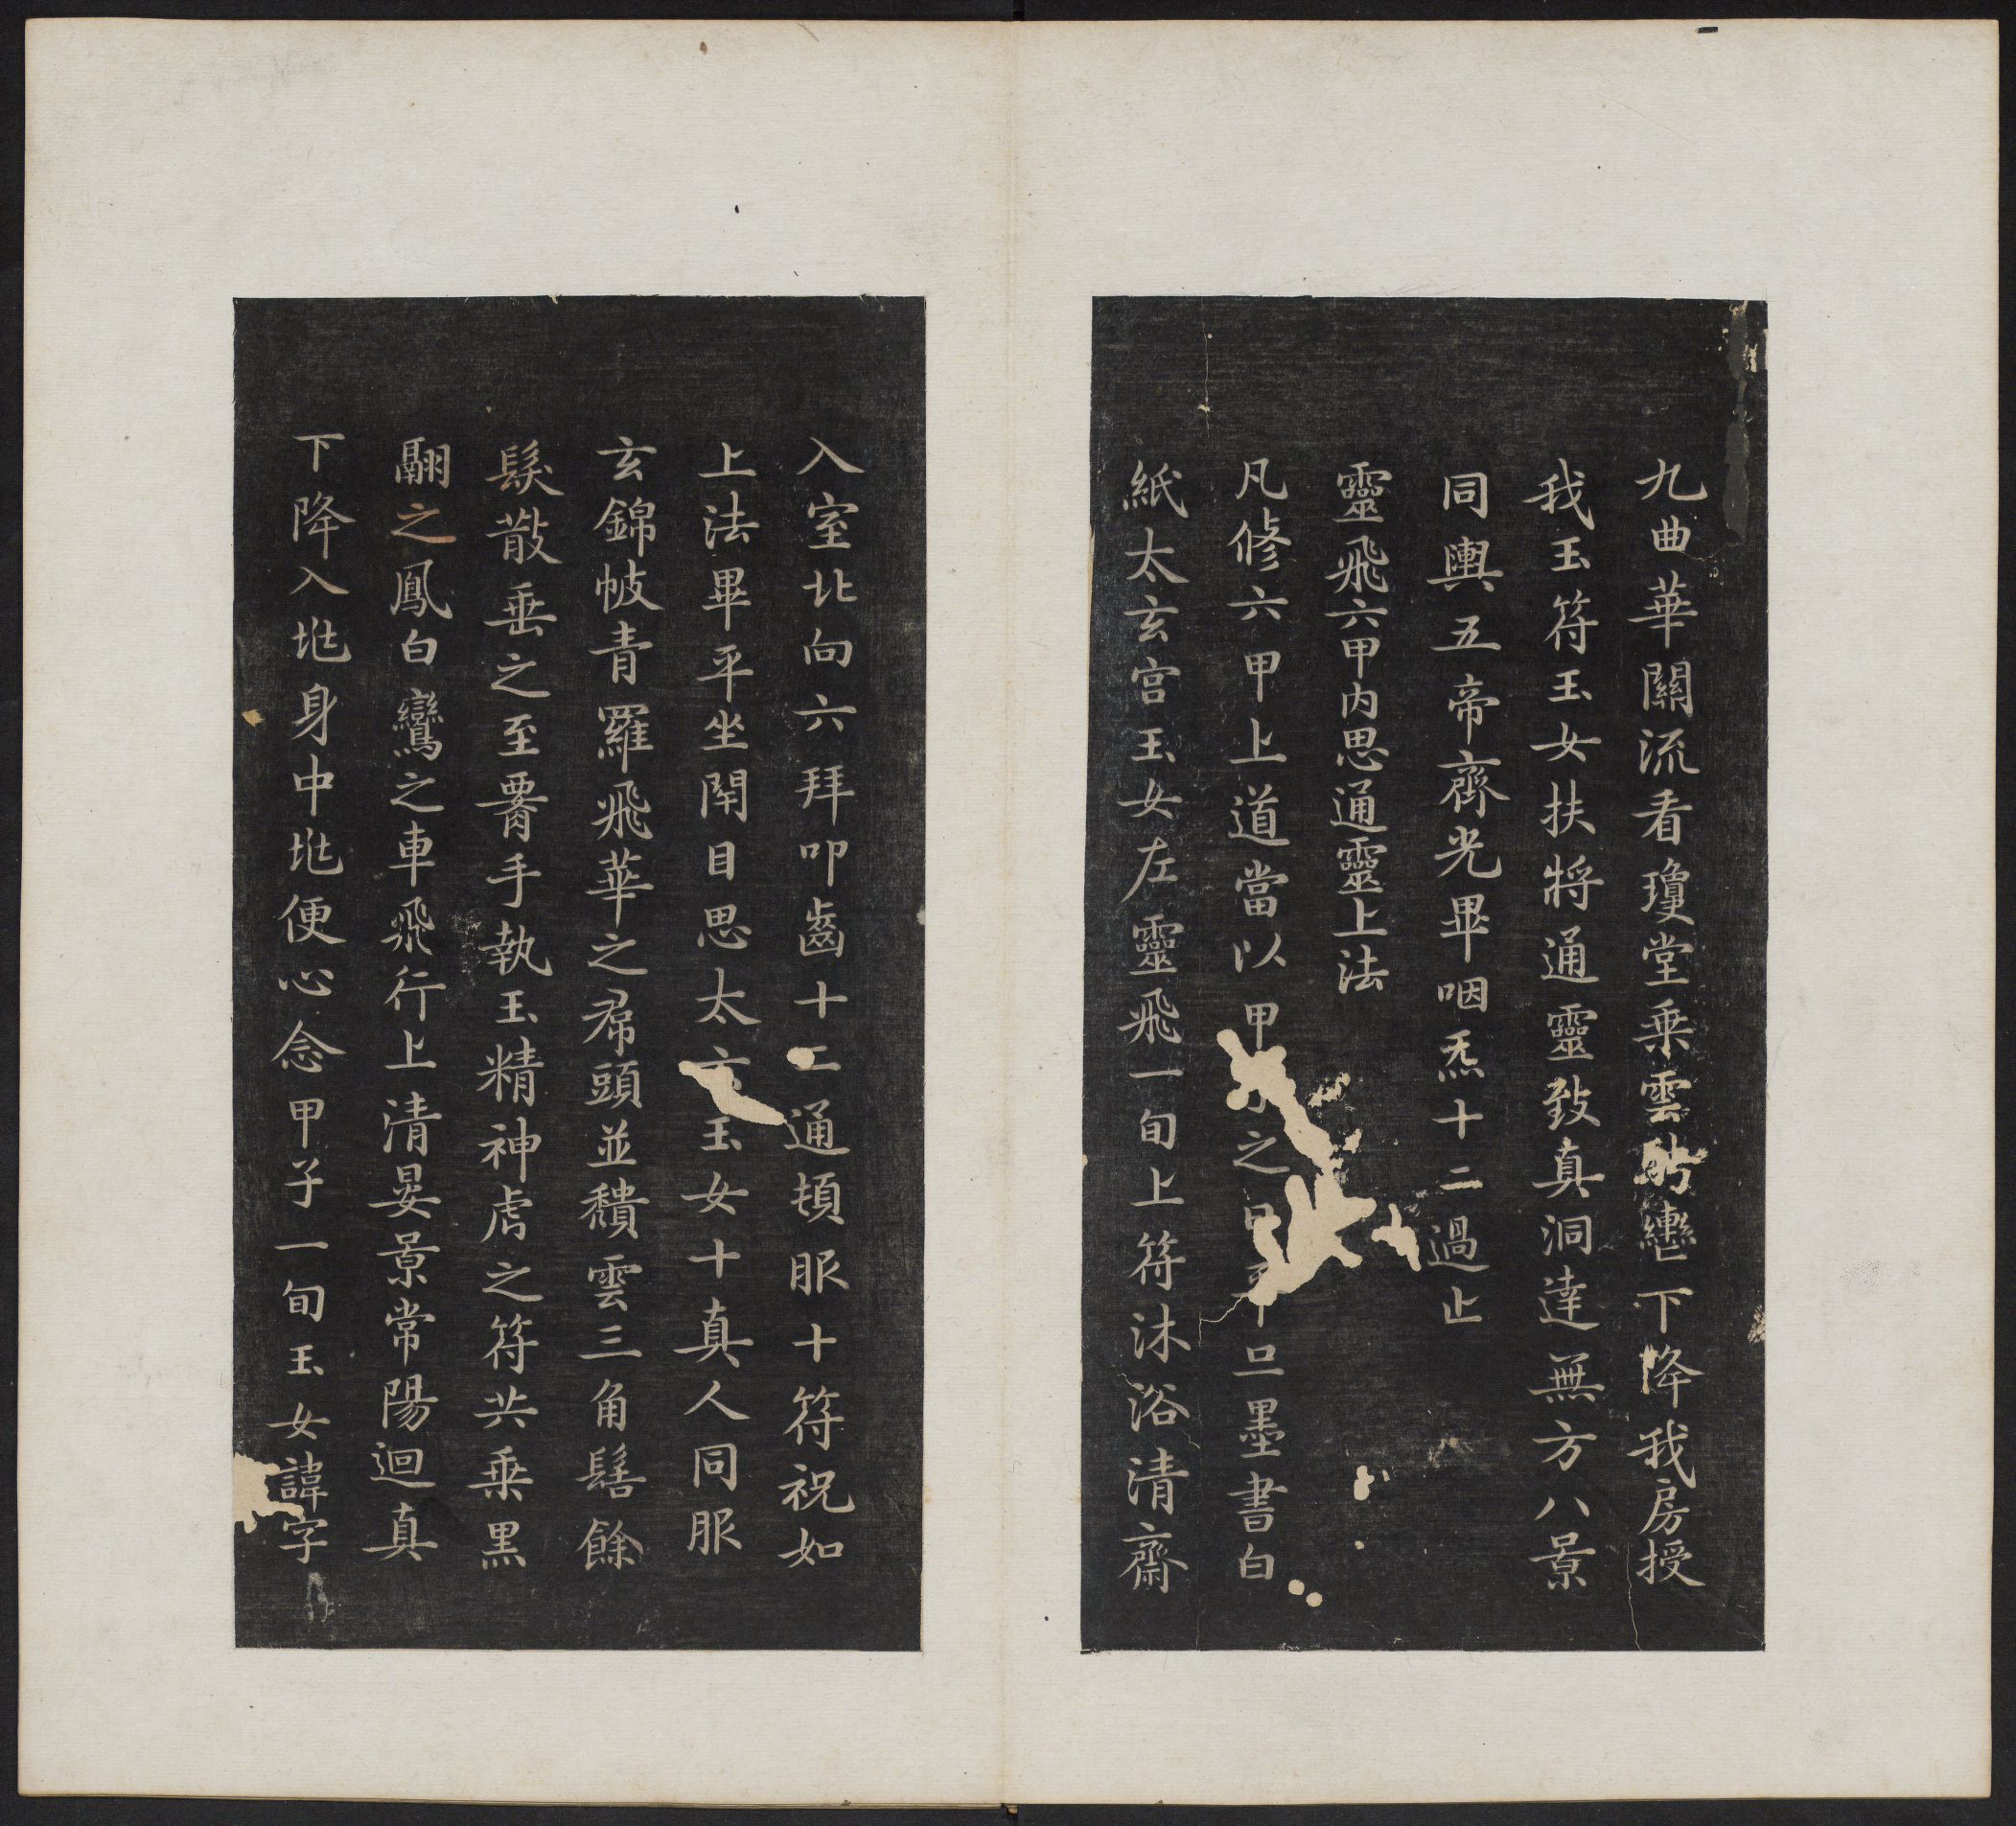 九曲華關流看瓊堂乘雲轡下降我房授
我玉符玉女扶將通靈致真洞達無方八景
同輿五帝齊光畢咽炁十二過止
靈飛六甲内思通靈上法
凡修六甲上道當以甲之日平旦墨書白
紙太玄宫玉女左靈飛一旬上符沐浴清齋
入室北向六拜叩齒十二通頓服十符祝如
上法畢平坐閇目思太玄玉女十真人同服
玄錦帔青羅飛華之帬頭並穨雲三角髻餘
髮散垂之至䯗手執玉精神虎之符共乘黑
翮之鳳白鸞之車飛行上清晏景常陽迴真
下降入兆身中兆便心念甲子一旬玉女諱字